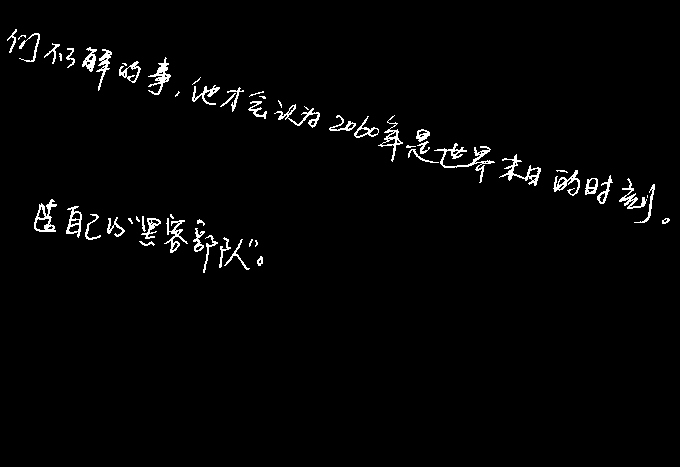 们不了解的事,他才会认为2060年是世界末日的时刻。
自己的“黑客部队”。